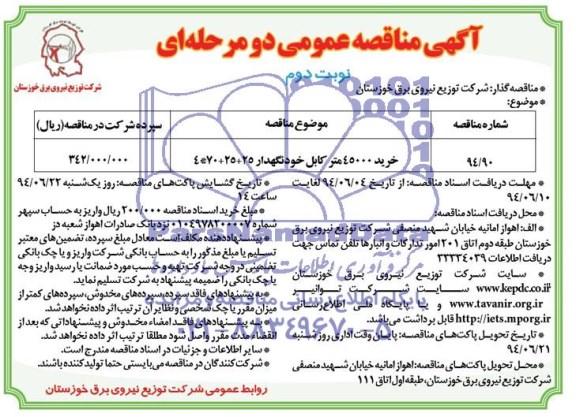 آگهی مناقصه عمومی دو مرحله‌ای
نوبت دوم
شرکت توزیع نیروی برق خوزستان
* مناقصه گذار: شرکت توزیع نیروی برق خوزستان
* موضوع:
شماره مناقصه
موضوع مناقصه
سپرده شرکت در مناقصه (ریال)
۹۴/۹۰
خرید ۴۵۰۰۰ متر کابل خودنگهدار ۲۵+۲۵+۷۰*۴
۳۴۲/۰۰۰/۰۰۰
* مهلت دریافت اسناد مناقصه: از تاریخ ۹۴/۰۶/۰۴ لغایت
۹۴/۰۶/۱۰
* محل دریافت اسناد مناقصه:
- الف: اهواز امانیه خیابان شهید منصفی شرکت توزیع نیروی برق
خوزستان طبقه دوم اتاق ۲۰۱ امور تدارکات و انبارها تلفن تماس جهت
دریافت اطلاعات ۳۳۳۳۴۰۳۹
- سایت شرکت توزیع نیروی برق خوزستان
www.kepdc.co.ir سایت شرکت توانیر
www.tavanir.org.ir و یا پایگاه ملی اطلاع‌رسانی
http://iets.mporg.ir قابل برداشت می‌باشد.
* تاریخ تحویل پاکت‌های مناقصه: پایان وقت اداری روز شنبه
۹۴/۰۶/۲۱
* محل تحویل پاکت‌های مناقصه: اهواز امانیه خیابان شهید منصفی
شرکت توزیع نیروی برق خوزستان، طبقه اول اتاق ۱۱۱
* تاریخ گشایش پاکت‌های مناقصه: روز یک‌شنبه ۹۴/۰۶/۲۲
ساعت ۱۴
* مبلغ خرید اسناد مناقصه ۲۰۰/۰۰۰ ریال واریز به حساب سپهر
شماره ۰۱۰۴۹۷۸۲۰۰۰۰۷ نزد بانک صادرات اهواز شعبه دز
* پیشنهاددهنده مکلف است معادل مبلغ سپرده، تضمین‌های معتبر
تسلیم یا مبلغ مذکور را به حساب بانکی شرکت واریز و یا چک بانکی
تضامینی در وجه شرکت تهیه و حسب مورد ضمانت یا رسید واریز وجه
یا چک بانکی را ضمیمه پیشنهاد به شرکت تسلیم نماید.
* به پیشنهادهای فاقد سپرده، سپرده‌های مخدوش، سپرده‌های کمتر از
میزان مقرر یا چک شخصی و نظایر آن ترتیب اثر داده نخواهد شد.
* به پیشنهادهای فاقد امضاء مخدوش و پیشنهاداتی که بعد از
انقضاء مدت مقرر واصل شود مطلقا ترتیب اثر داده نخواهد شد.
* سایر اطلاعات و جزئیات در اسناد مناقصه مندرج است.
* شرکت‌کنندگان در مناقصه می‌بایستی حتما تولیدکننده باشند.
روابط عمومی شرکت توزیع نیروی برق خوزستان